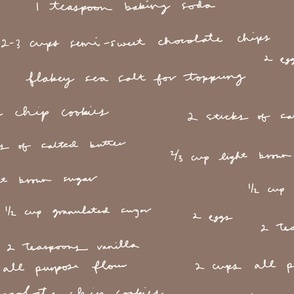 1 teaspoon baking soda
2-3 cups semi-sweet chocolate chips
2 egg
flakey sea salt for topping
chip cookies
2 sticks of sa
of salted butter
2/3 cup light brown
brown sugar
1/2 cup
1/2 cup granulated sugar
2 eggs
2 tea
2 teaspoons vanilla
all purpose flour
2 cups all p
chip cookies